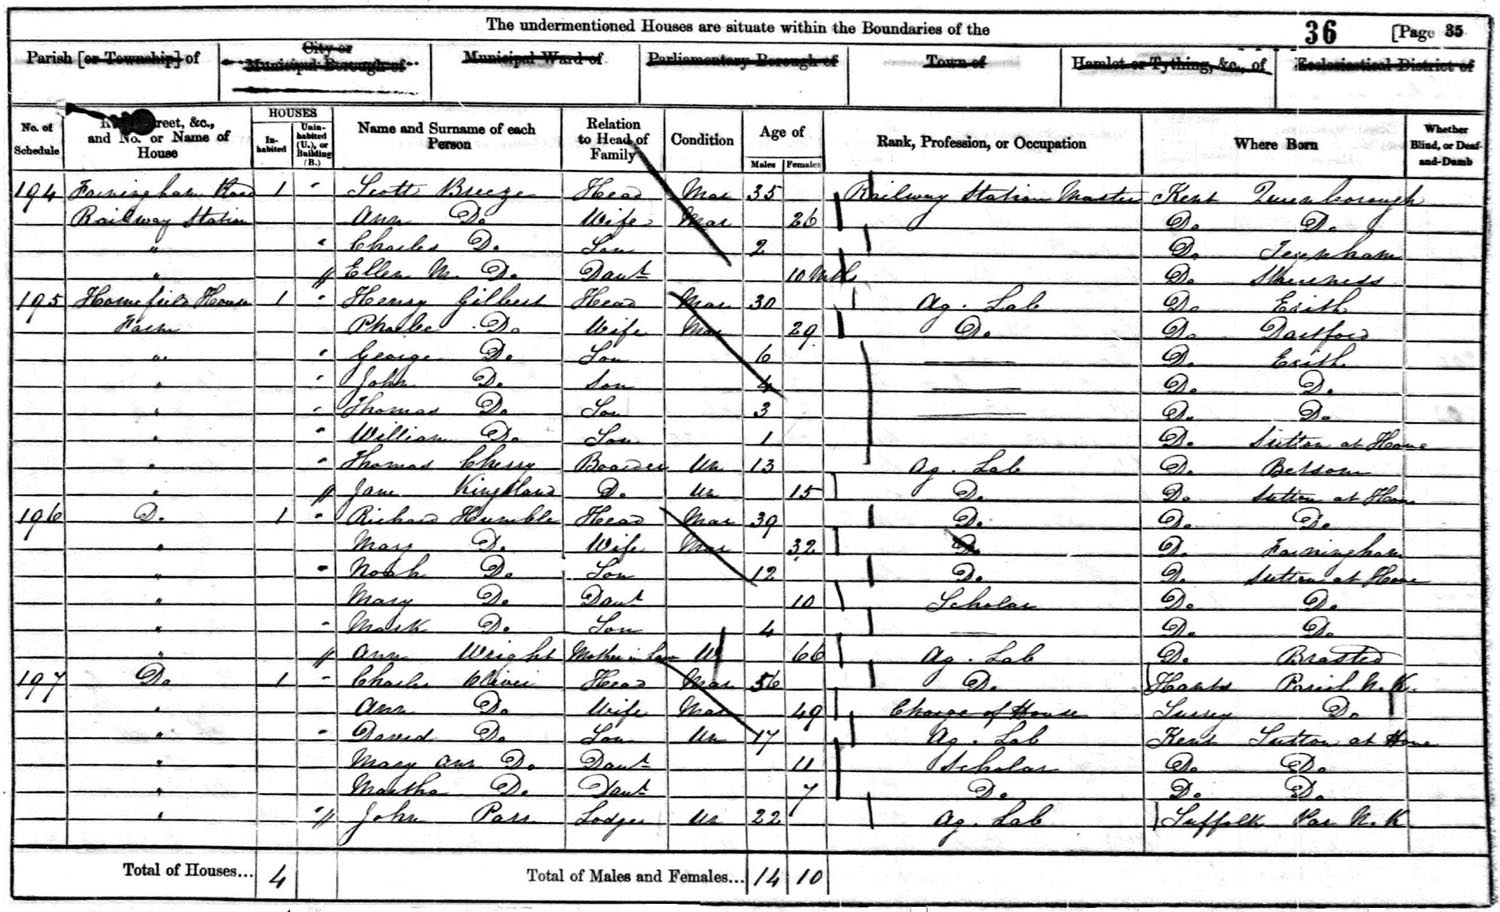 The undermentioned Houses are situate within the Boundaries of the 36 [Page 35
Parish [or Township] of City or Municipal Borough of Municipal Ward of Parliamentary Borough of Town of Hamlet or Tything, &c., of Ecclesiastical District of
No. of Schedule Street, &c., and No. or Name of House HOUSES In-habited Unin-habited (U.), or Building (B.) Name and Surname of each Person Relation to Head of Family Condition Age of Males Females Rank, Profession, or Occupation Where Born Whether Blind, or Deaf-and-Dumb
194 Farningham Road 1 Scott Breeze Head Mar 35 Railway Station Master Kent Queenborough
Railway Station Ann Do Wife Mar 26 Do Do
" Charles Do Son 2 Do
" Ellen M. Do Daut 10 Mths Do Sheerness
195 Homefield House 1 Henry Gilbert Head Mar 30 Ag. Lab Do Erith
Farm Phœbe Do Wife Mar 29 Do Do Dartford
" George Do Son 6 Do Erith
" John Do Son 4 Do Do
" Thomas Do Son 3 Do Do
" William Do Son 1 Do Sutton at Hone
" Thomas Cherry Boarder Un 13 Ag. Lab Do
" Jane Kingsland Do Un 15 Do Do Sutton at Hone
196 Do 1 Richard Humble Head Mar 39 Do Do Do
" Mary Do Wife Mar 32 Do Do Farningham
" Noah Do Son 12 Do Do Sutton at Hone
" Mary Do Daut 10 Scholar Do Do
" Mark Do Son 4 Do Do
" Ann Wright Mother in Law W 66 Ag. Lab Do Brasted
197 Do 1 Charles Oliver Head Mar 56 Do Hants Parish N.K.
" Ann Do Wife Mar 49 Charge of House Surrey Do
" David Do Son Un 17 Ag. Lab Kent Sutton at Hone
" Mary Ann Do Daut 11 Scholar Do Do
" Martha Do Daut 7 Do Do Do
" John Parr Lodger Un 22 Ag. Lab Suffolk Par N.K
Total of Houses... 4 Total of Males and Females... 14 10